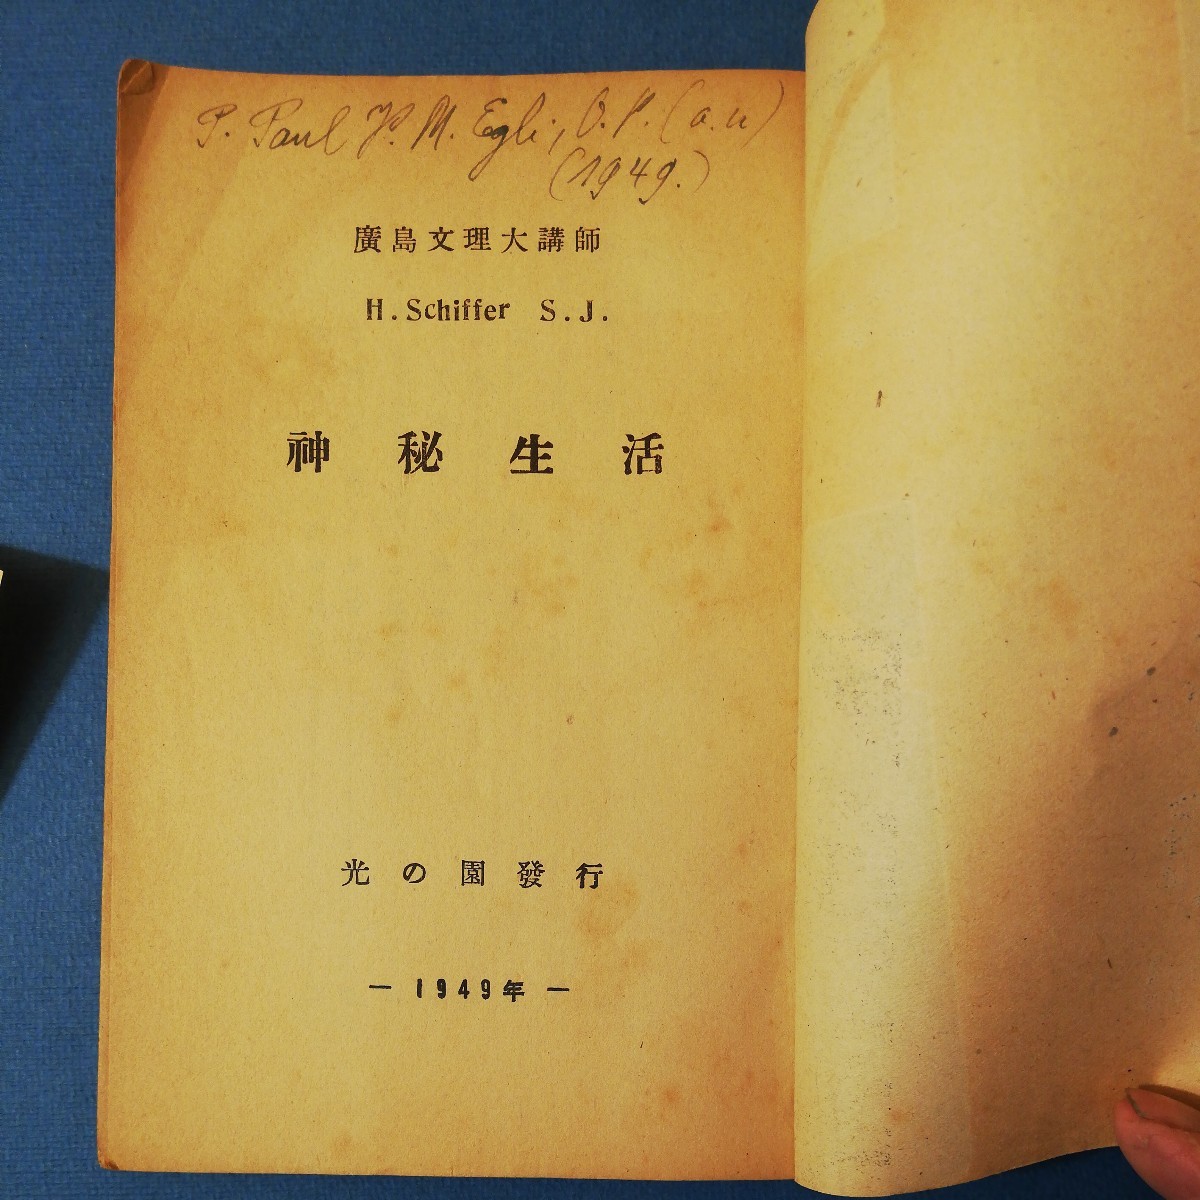 P. Paul P. M. Egli, O.P. (a.u)
(1949.)
廣島文理大講師
H. Schiffer S.J.
神秘生活
光の園發行
— 1949年 —